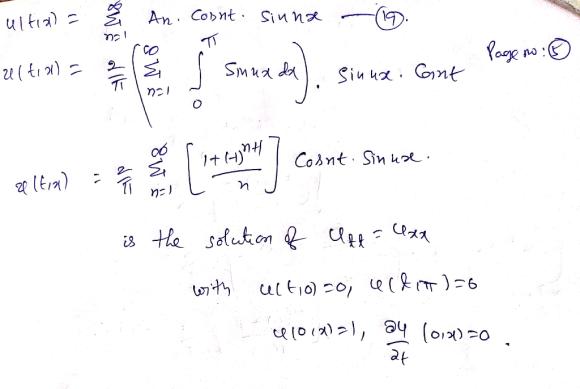 u(t,x) = ∞Σn=1 An. Cosnt. Sinnx —(19).
Page no: 5
u(t,x) = 2/π (∞Σn=1 ∫0^π Sinnx dx). Sinnx. Cosnt
u(t,x) = 2/π ∞Σn=1 [1+(-1)^n+1 / n] Cosnt. Sinnx.
is the solution of Utt = Uxx
with u(t,0)=0, u(t,π)=0
u(0,x)=1, ∂u/∂t (0,x)=0.